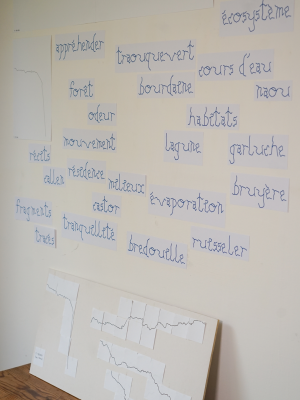 écosystème
appréhender
traouquevert
cours d'eau
forêt
bourdaine
naou
odeur
habitats
mouvement
lagune
garluche
récits
callen
résidence
mélieux
bruyère
castor
évaporation
fragments
tranquillité
tracés
bredouille
ruisseler